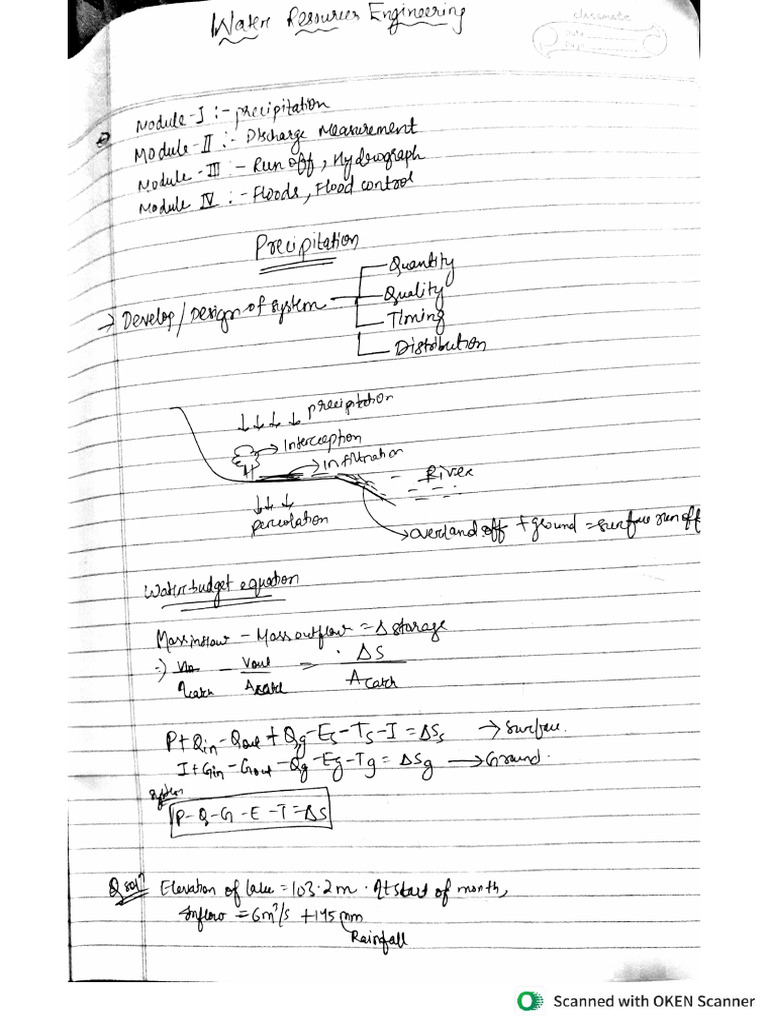 Water Resources Engineering
classmate
Date
Page
Module-I :- precipitation
Module-II :- Discharge Measurement
Module-III :- Run off, Hydrograph
Module IV :- Floods, Flood control
Precipitation
→ Develop/Design of system
Quantity
Quality
Timing
Distribution
↓ ↓ ↓ ↓ precipitation
→ Interception
→ infiltration
River
↓ ↓ ↓
percolation
→ overland off + ground = surface run off
Water budget equation
Mass inflow - Mass outflow = Δ storage
Vout ΔS
Acatch Acatch
P+Qin-Qout+Qg-Es-Ts-I = ΔSs → surface.
I+Gin-Gout-Qg-Eg-Tg = ΔSg → Ground.
system
P-Q-G-E-T=ΔS
Q sol? Elevation of lake = 103.2m. At start of month,
Inflow = 6m³/s + 145 mm
Rainfall
Scanned with OKEN Scanner